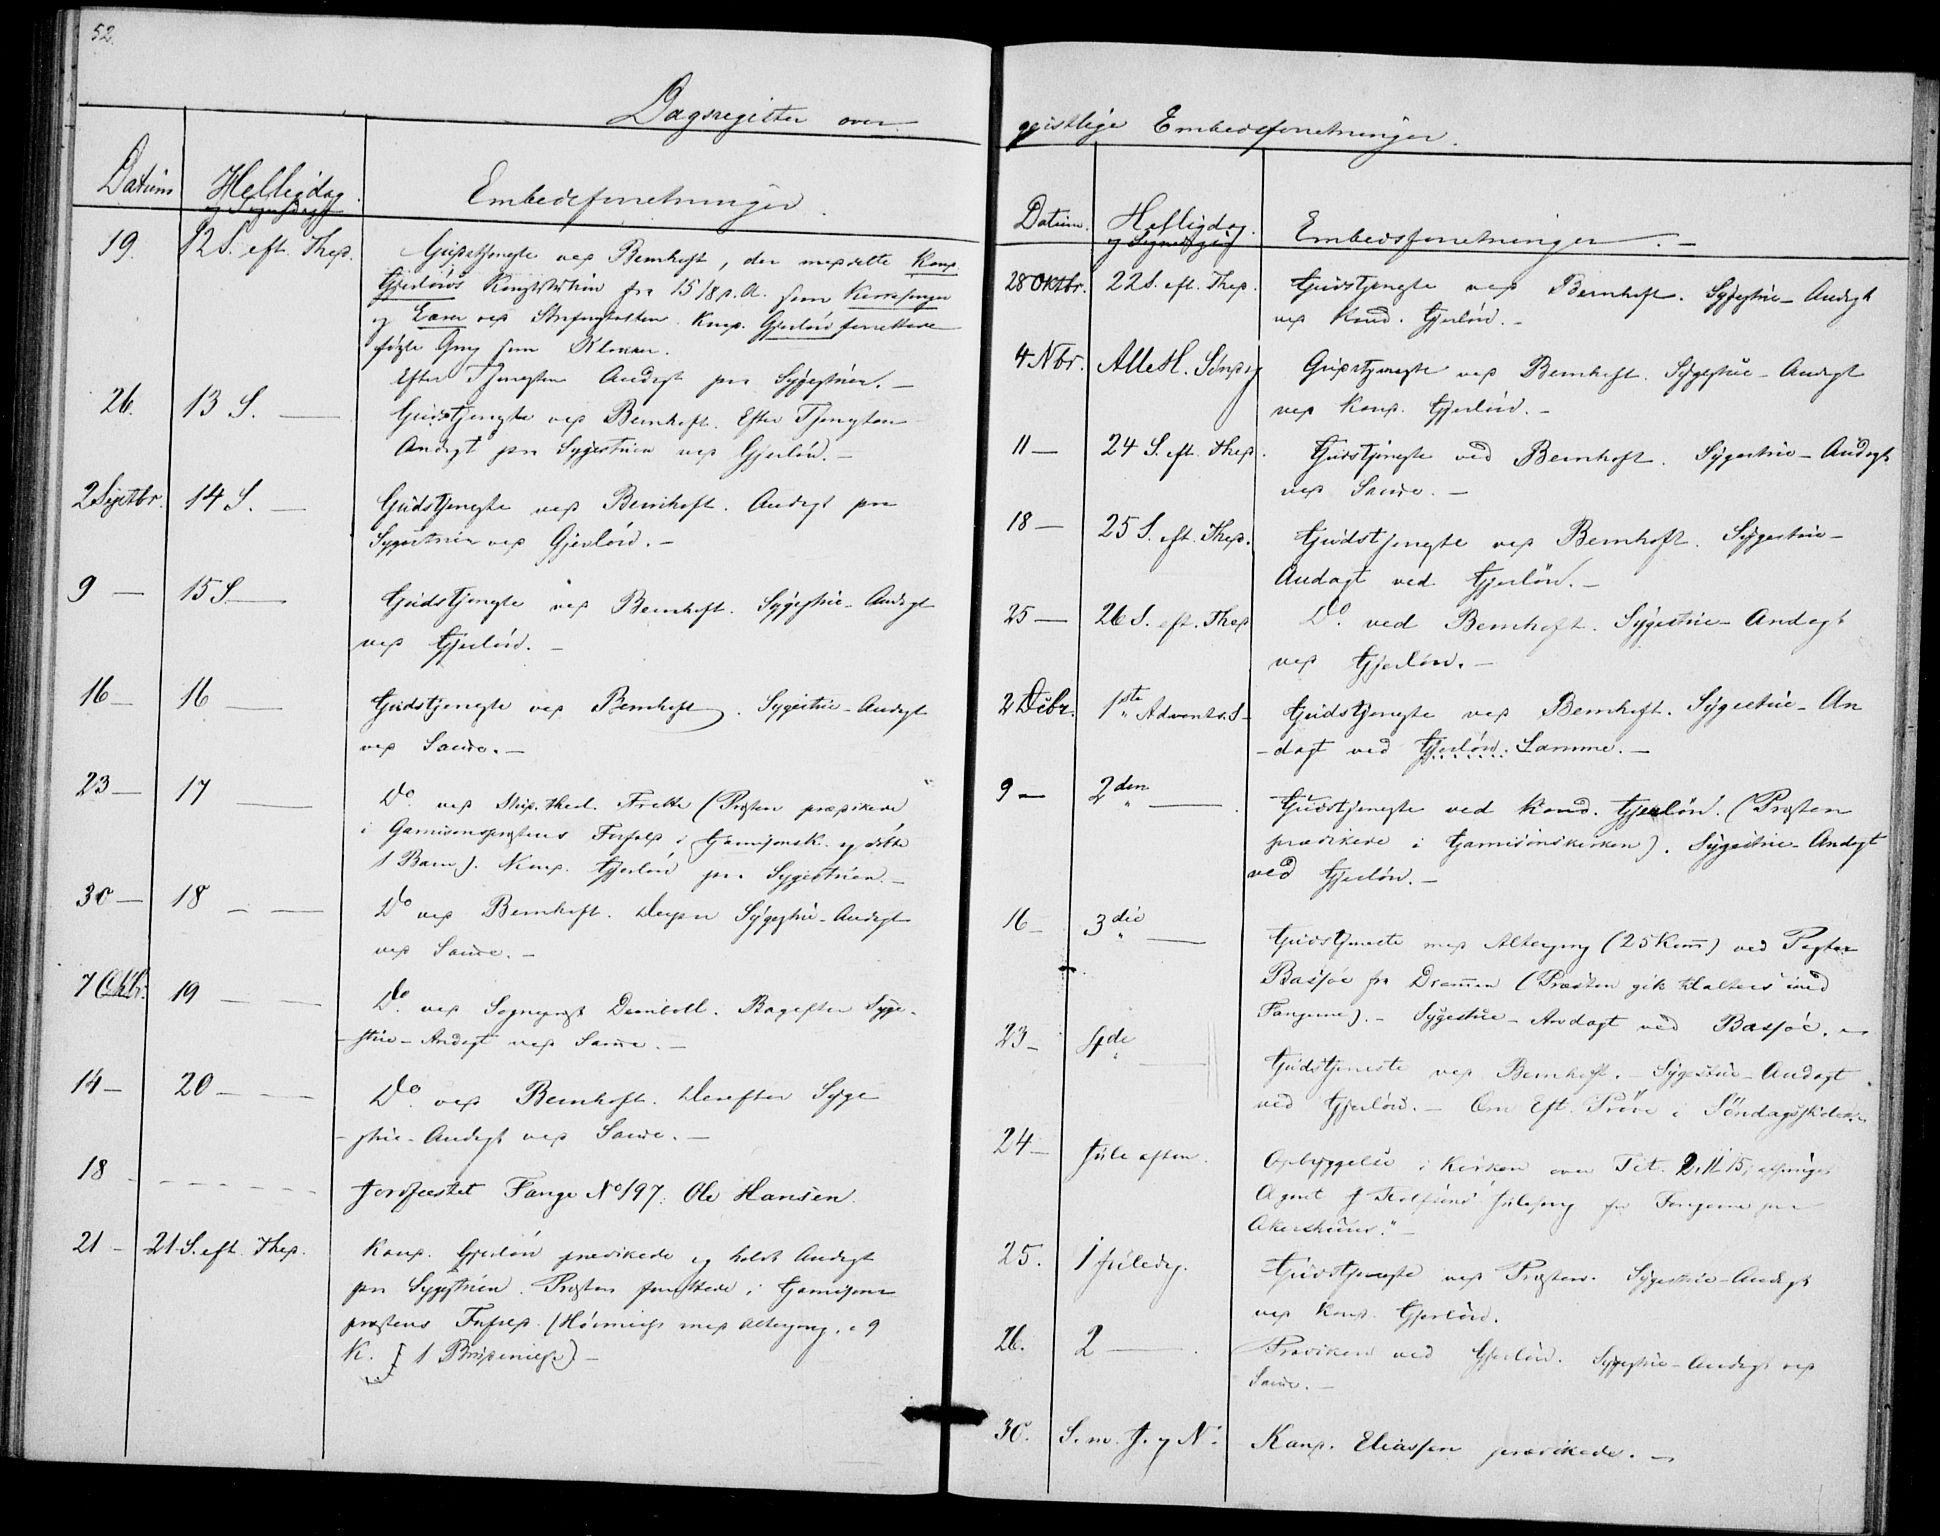 52.
Dagsregister over
Datum
Helligdag
og Søgnedage
Embedsforretninger.
19.
12 S. eft. Thrp.
Gudstjeneste ved Bernhoft, der meddelte Kand.
Gjerløws Konstitution fra 15/8 d. A. som Kirkesanger
og Lærer ved Strafanstalten. Kand. Gjerløw forrettede
første Gang som Klokker.
Efter Tjenesten Andagt paa Sygestuen. —
26.
13 S. —
Gudstjeneste ved Bernhoft. Efter Tjenesten
Andagt paa Sygestuen ved Gjerløw. —
2 Septbr.
14 S. —
Gudstjeneste ved Bernhoft. Andagt paa
Sygestuen ved Gjerløw. —
9 —
15 S. —
Gudstjeneste ved Bernhoft. Sygestue-Andagt
ved Gjerløw. —
16 —
16 —
Gudstjeneste ved Bernhoft. Sygestue-Andagt
ved Samme. —
23 —
17 —
Do. ved Stud. theol. (Præsten prædikede
i Garnisonspræstens Forfald i Garnisonsk. og døbte
1 Barn). Kand. Gjerløw paa Sygestuen. —
30 —
18 — —
Do ved Bernhoft. Derpaa Sygestue-Andagt
ved Samme. —
7 Oktbr.
19 — —
Do. ved Sogneprest. Bagefter Syge-
-stue-Andagt ved Samme. —
14 —
20 — —
Do. ved Bernhoft. Derefter Syge
-stue-Andagt ved Samme. —
18
Jordfæstet Fange No 197. Ole Hansen.
21 —
21 S. eft. Thrp.
Kand. Gjerløw prædikede og holdt Andagt
paa Sygestuen. Præsten forrettede i Garnisons
præstens Forfald. (Høimesse med Altergang, 9
K. 1 Brudevielse) —
geistlige Embedsforretninger.
Datum.
Helligdag.
og Søgnedage
Embedsforretninger. —
28 Oktbr.
22 S. eft. Thrp.
Gudstjeneste ved Bernhoft. Sygestue-Andagt
ved Kand. Gjerløw. —
4 Nbr.
Alle H. Søndag
Gudstjeneste ved Bernhoft. Sygestue-Andagt
ved Kand. Gjerløw. —
11 —
24 S. eft. Thrp.
Gudstjeneste ved Bernhoft. Sygestue-Andagt
ved Samme. —
18 —
25 S. eft. Thrp.
Gudstjeneste ved Bernhoft. Sygestue-
Andagt ved Gjerløw. —
25 —
26 S. eft. Thrp
Do. ved Bernhoft. Sygestue-Andagt
ved Gjerløw. —
2 Decbr.
1ste Advents. S —
Gudstjeneste ved Bernhoft. Sygestue-An
-dagt ved Gjerløw. Samme. —
9 —
2den —
Gudstjeneste ved Kand. Gjerløw. (Præsten
prædikede i Garnisonskirken). Sygestue-Andagt
ved Gjerløw. —
16 —
3die —
Gudstjeneste med Altergang (25 Kom) ved Pastor
Bassøe fra Drammen (Præsten gik til alters med
Fangerne). — Sygestue-Andagt ved Bassøe. —
23 —
4de —
Gudstjeneste ved Bernhoft. — Sygestue-Andagt
ved Gjerløw. — Om Eft. Prøve i Søndagsskolen. —
24 —
Jule aften.
Opbyggelse i Kirken over Tit. 2, 11-15, afsunges
Agent Julesang for Fangerne paa
Akershuus." —
25.
1 Juledag.
Gudstjeneste ved Præsten. Sygestue-Andagt
ved Kand. Gjerløw.
26.
2 —
Prædiken ved Gjerløw. Sygestue-Andagt ved
Samme. —
30.
S. m. J. og N.
Kand. Eliassen prædikede. —